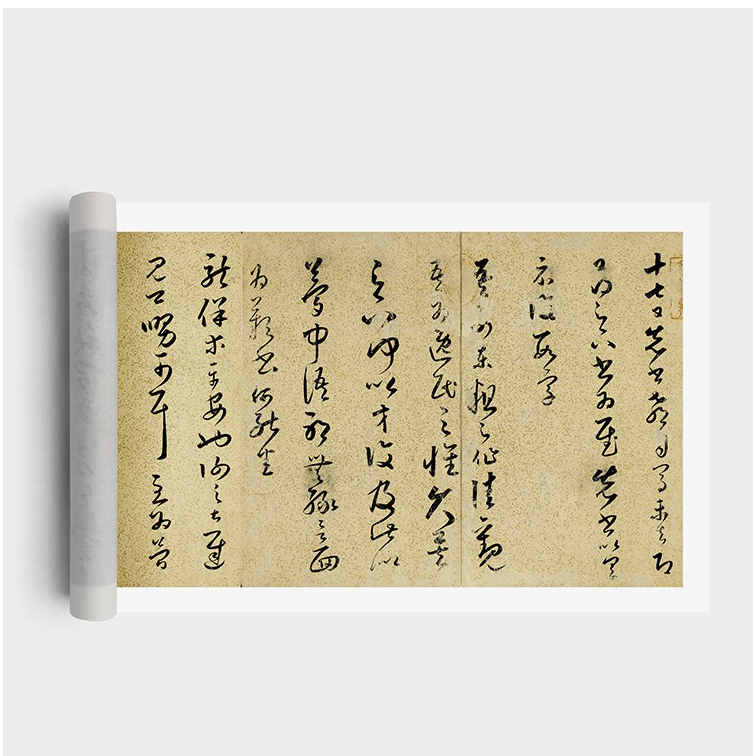 十七日先書郗司馬未去即
日得足下書為慰先書以具
示復數字
吾前東粗足作佳觀
吾為逸民之懷久矣
足下何以方復及此似
夢中語耶無緣言面
為歎書何能悉
龍保等平安也謝之甚遲
見卿舅可耳至為簡